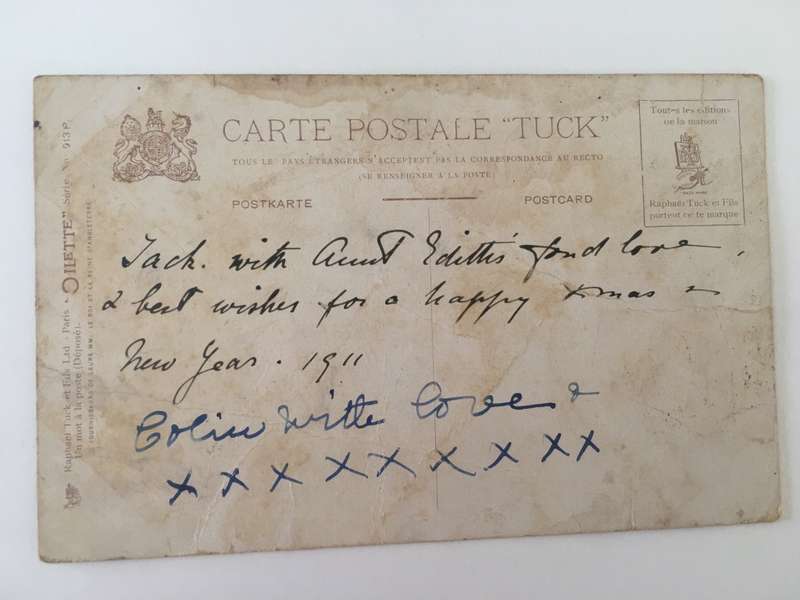 CARTE POSTALE "TUCK"
TOUS LE PAYS ÉTRANGERS N'ACCEPTENT PAS LA CORRESPONDANCE AU RECTO
(SE RENSEIGNER À LA POSTE)
POSTKARTE
POSTCARD
Toutes les éditions
de la maison
Raphael Tuck et Fils
portent ce te marque
Raphael Tuck et Fils Ltd - Paris. "OILETTE" Série No 913 P.
Un mot à la poste (Déposé).
FOURNISSEURS DE LEURS MM. LE ROI ET LA REINE D'ANGLETERRE
Jack. with Aunt Edith's fond love,
& best wishes for a happy Xmas &
New Year. 1911
Colin with love &
x x x x x x x x x